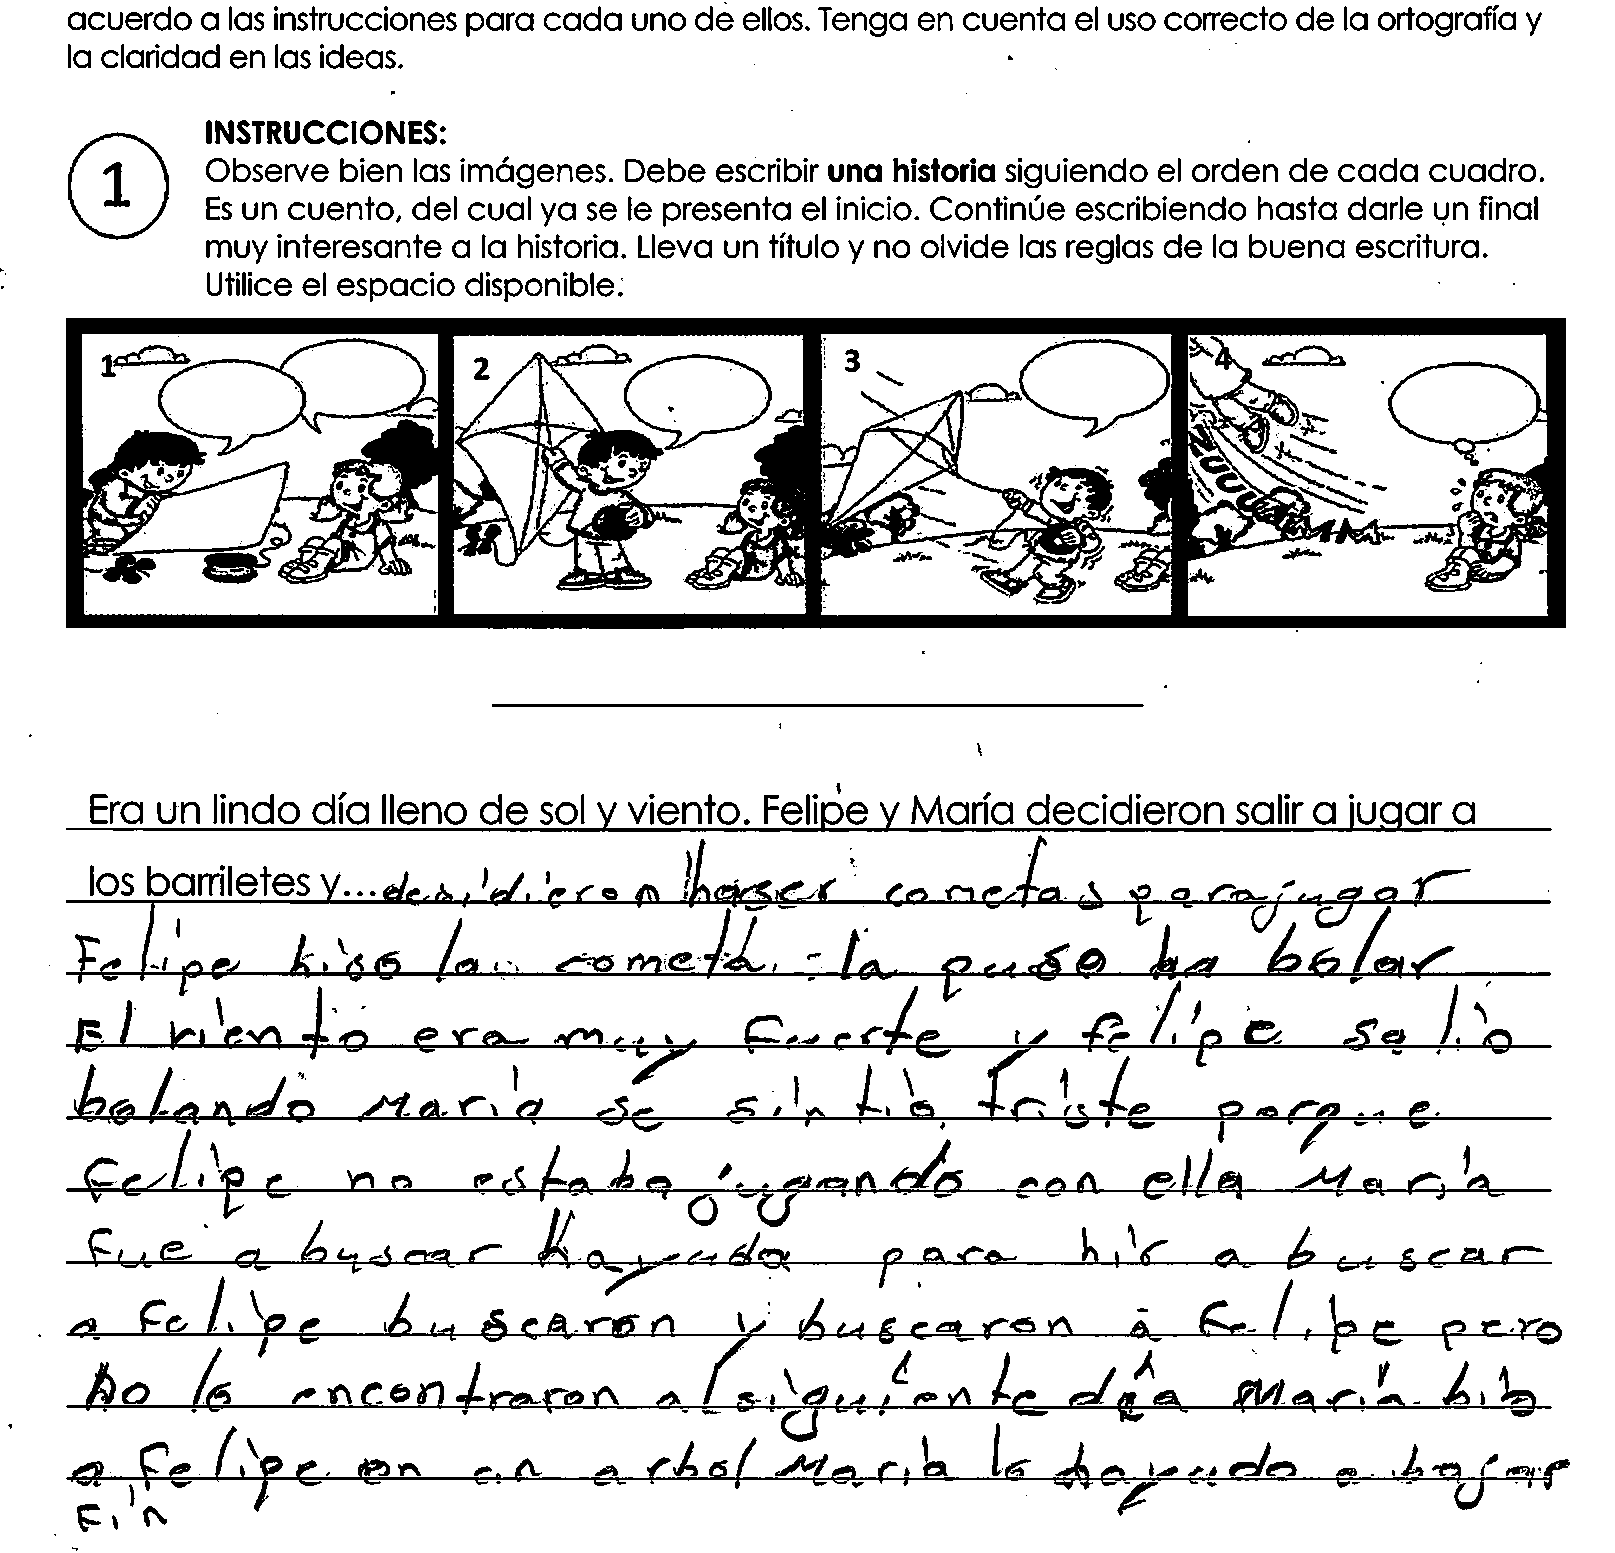 acuerdo a las instrucciones para cada uno de ellos. Tenga en cuenta el uso correcto de la ortografía y
la claridad en las ideas.
1
INSTRUCCIONES:
Observe bien las imágenes. Debe escribir una historia siguiendo el orden de cada cuadro.
Es un cuento, del cual ya se le presenta el inicio. Continúe escribiendo hasta darle un final
muy interesante a la historia. Lleva un título y no olvide las reglas de la buena escritura.
Utilice el espacio disponible.
1 2 3 4
ZUUUU
Era un lindo día lleno de sol y viento. Felipe y María decidieron salir a jugar a
los barriletes y... desidieron haser cometas para jugar
Felipe hiso la cometa la puso ha bolar
El viento era muy fuerte y felipe salio
bolando Maria se sintio triste porque
felipe no estaba jugando con ella Maria
fue a buscar hayuda para hir a buscar
a Felipe buscaron y buscaron a Felipe pero
no lo encontraron al siguiente día Maria bio
a Felipe en un arbol Maria lo hayudo a bajar
Fin